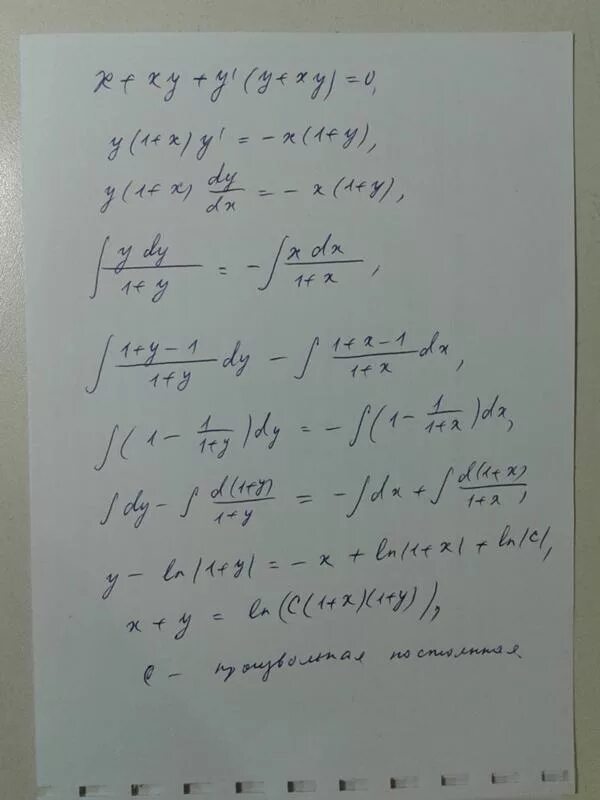 x + xy + y' (y + xy) = 0,
y (1+x) y' = - x (1+y),
y (1+x) dy/dx = - x (1+y),
∫ y dy / 1+y = - ∫ x dx / 1+x ,
∫ 1+y-1 / 1+y dy - ∫ 1+x-1 / 1+x dx,
∫ ( 1 - 1/1+y ) dy = - ∫ ( 1 - 1/1+x ) dx,
∫ dy - ∫ d(1+y) / 1+y = - ∫ dx + ∫ d(1+x) / 1+x ,
y - ln |1+y| = - x + ln |1+x| + ln |C|,
x + y = ln (C (1+x) (1+y) ),
C - произвольная постоянная